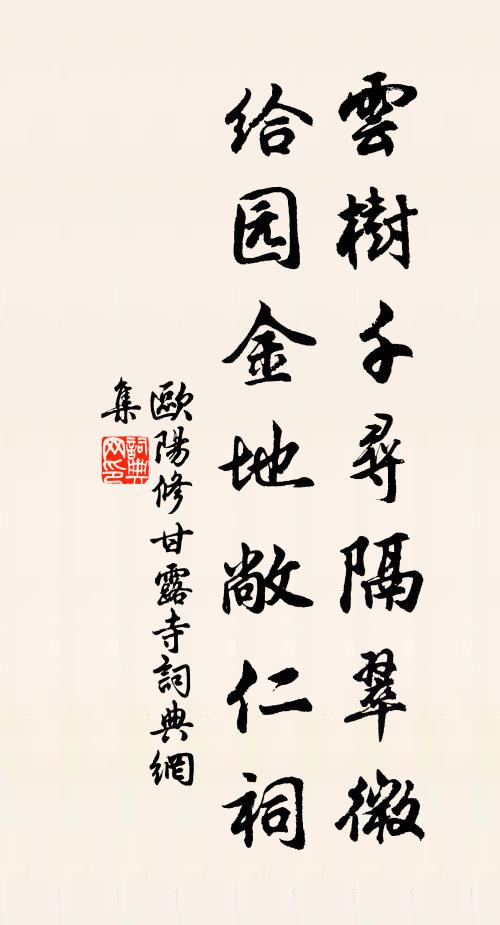 雲樹千尋隔翠微
给园金地敞仁祠
歐陽修甘露寺詞典網
集
詞典网印